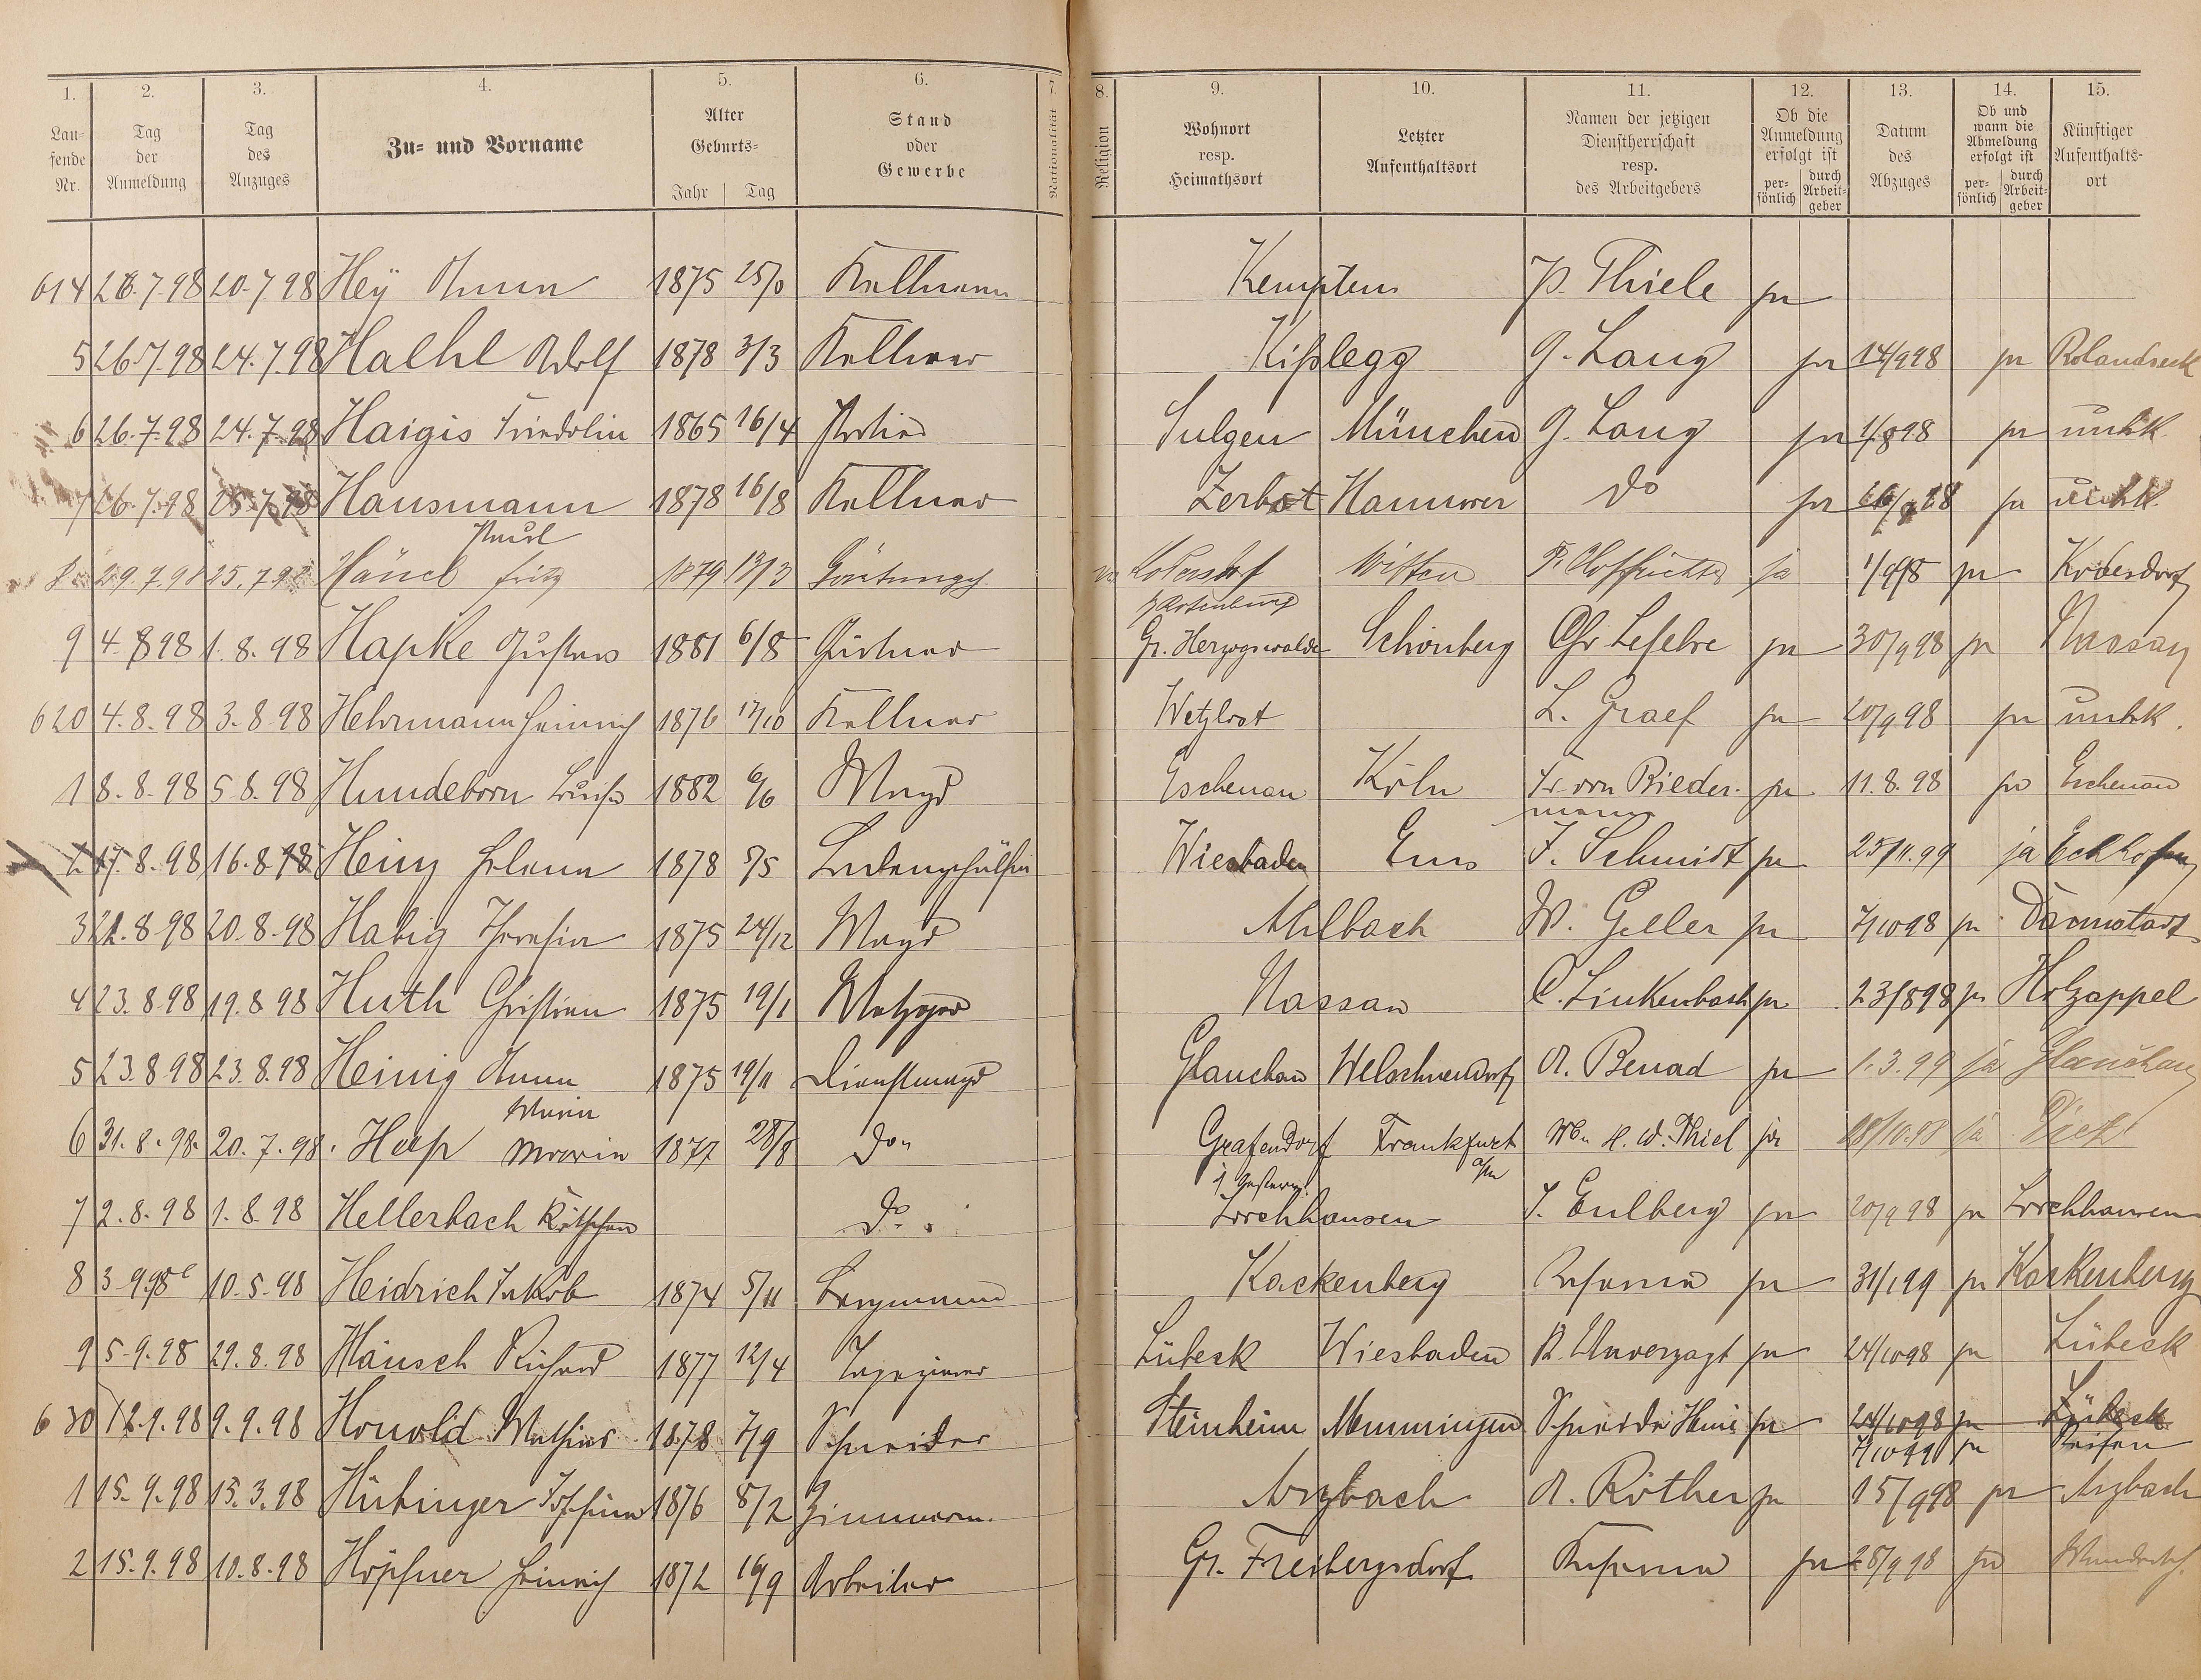 1. 2. 3. 4. 5. 6. 7. 8. 9. 10. 11. 12. 13. 14. 15.
Lau-fende Nr. | Tag der Anmeldung | Tag des Anzuges | Zu- und Vorname | Alter Geburts- Jahr Tag | Stand oder Gewerbe | Nationalität | Religion | Wohnort resp. Heimathsort | Letzter Aufenthaltsort | Namen der jetzigen Dienstherrschaft resp. des Arbeitgebers | Ob die Anmeldung erfolgt ist per-sönlich durch Arbeit-geber | Datum des Abzuges | Ob und wann die Abmeldung erfolgt ist per-sönlich durch Arbeit-geber | Künftiger Aufenthalts-ort
614 26.7.98 20.7.98 Hey Anna 1875 Kellnerin Kempten P. Thiele ja
5 26.7.98 24.7.98 Haehl Adolf 1878 3/3 Kellner Kißlegg G. Lang ja 14/9 98 ja Rolandseck
6 26.7.98 24.7.98 Haigis Friedolin 1865 16/4 Portier Sulgen München G. Lang ja 1/8 98 ja unbk.
7 26.7.98 25.7.98 Hausmann Paul 1878 16/8 Kellner Zerbst Hannover do ja ja unbk.
8 29.7.98 25.7.98 Hänel Fritz 1879 13/3 Witten ja 1/9 98 ja Kodersdorf
9 4.8.98 1.8.98 Hapke Gustav 1881 6/8 Gärtner Gr. Herzogswalde b/Rosenberg Schönberg Chr Lefebre ja 30/9 98 ja Nassau
620 4.8.98 3.8.98 Hehrmann Heinrich 1876 17/10 Kellner Wetzlar L. Graef ja 20/9 98 ja unbk.
1 8.8.98 5.8.98 Hundeborn Luise 1882 6/6 Magd Eschenau Köln Fr. von Biedermann ja 11.8.98 ja Eschenau
2 17.8.98 16.8.98 Heinz Helena 1878 5/5 Ladengehülfin Wiesbaden Ems J. Schmidt ja 25/11.99 ja
3 22.8.98 20.8.98 Habig Theresia 1875 24/12 Magd Ahlbach W. Geller ja 7/10 98 ja Darmstadt
4 23.8.98 19.8.98 Huth Christian 1875 19/1 Metzger Nassau C. Linkenbach ja 23/8 98 ja Holzappel
5 23.8.98 23.8.98 Heinig Anna Maria 1875 19/11 Dienstmagd Glauchau Welschneudorf A. Benad ja 1.3.99 ja Glauchau
6 31.8.98. 20.7.98. Heep Maria 1877 28/8 do. Grafendorf Frankfurt a/m Wb. H. W. Thiel ja 28/10.98 ja Diez
7 2.8.98 1.8.98 Hellerbach Käthchen do. Lorchhausen J. Eulberg ja 20/9 98 ja Lorchhausen
8 3.9.98 10.5.98 Heidrich Jakob 1874 5/11 Bergmann Kackenberg ja 31/1 99 ja Kackenberg
9 5.9.98 29.8.98 Häusch Richard 1877 12/4 Tapezierer Lübeck Wiesbaden R. Unverzagt ja 24/10 98 ja Lübeck
630 12.9.98 9.9.98 Honold Mathias 1878 7/9 Schneider Steinheim Memmingen Schneider Heinr ja 24/10 98 ja Lübeck
7/10 99 ja Reisen
1 15.9.98 15.3.98 Hübinger Johann 1876 8/2 Zimmerm. Arzbach A. Röther ja 15/9 98 ja Arzbach
2 15.9.98 10.8.98 Höpfner Heinrich 1872 16/9 Arbeiter Gr. Freibergsdorf ja 28/9 98 ja